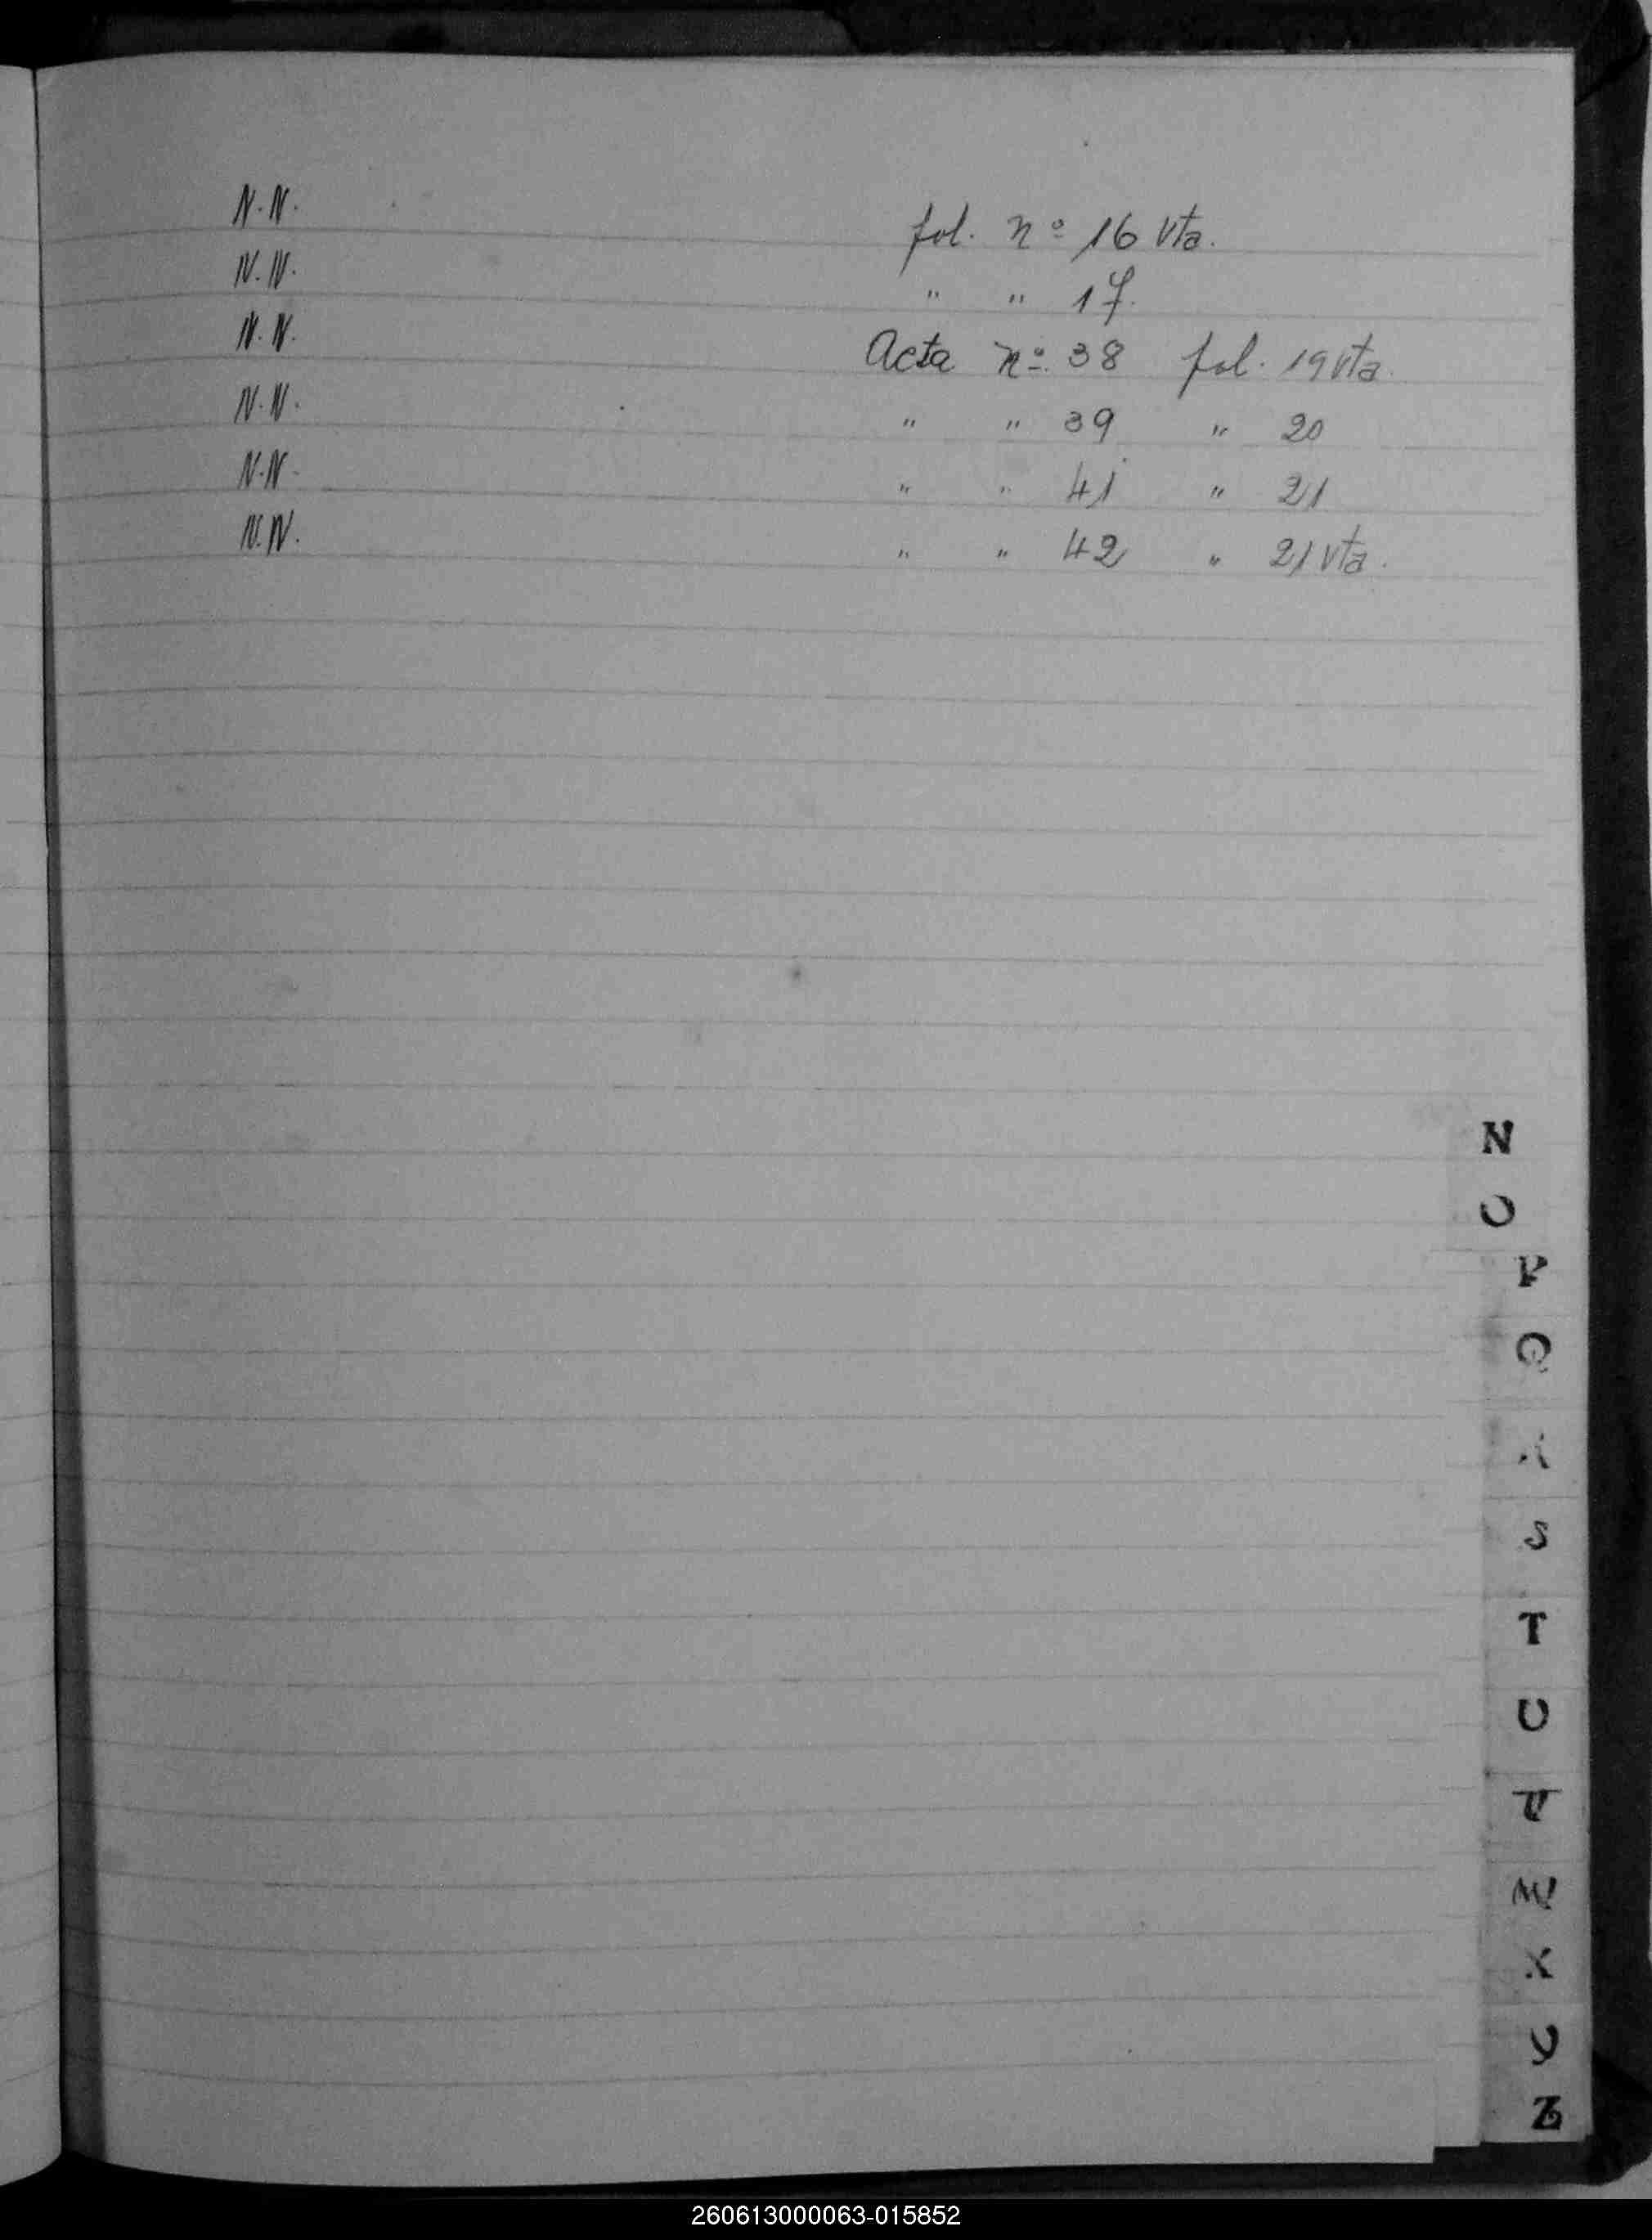 N.N. fol. nº 16 vta.
N.N. " " 17.
N.N. Acta nº 38 fol. 19 vta.
N.N. " " 39 " 20
N.N. " " 41 " 21
N.N. " " 42 " 21 vta.
N
O
P
Q
S
T
U
V
W
X
Y
Z
260613000063-015852